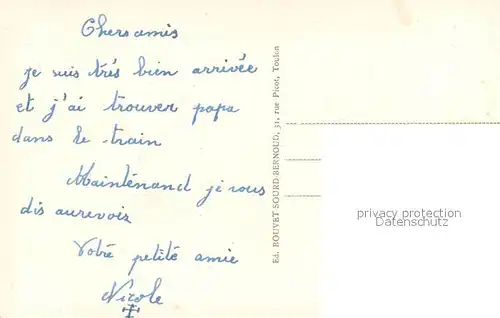 Chers amis
je suis trés bien arrivée
et j'ai trouver papa
dans le train
Maintenand je vous
dis aurevoir
Votre petite amie
Nicole
Ed. BOUVET SOURD-BERNOUD, 31, rue Picot, Toulon
privacy protection
Datenschutz